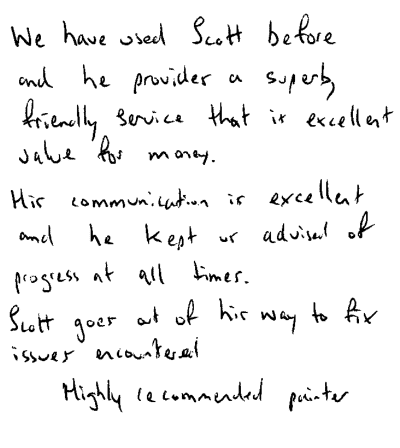 We have used Scott before
and he provides a superb,
friendly service that is excellent
value for money.
His communication is excellent
and he kept us advised of
progress at all times.
Scott goes out of his way to fix
issues encountered
Highly recommended painter